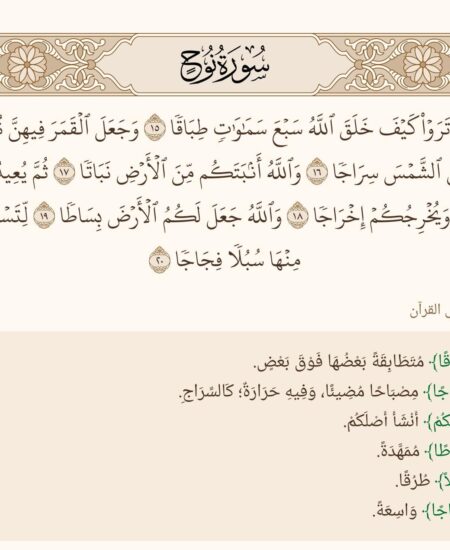 سُورَةُ نُوحٍ
تَرَوْا۟ كَيْفَ خَلَقَ ٱللَّهُ سَبْعَ سَمَٰوَٰتٍ طِبَاقًا ١٥ وَجَعَلَ ٱلْقَمَرَ فِيهِنَّ
ٱلشَّمْسَ سِرَاجًا ١٦ وَٱللَّهُ أَنۢبَتَكُم مِّنَ ٱلْأَرْضِ نَبَاتًا ١٧ ثُمَّ
وَيُخْرِجُكُمْ إِخْرَاجًا ١٨ وَٱللَّهُ جَعَلَ لَكُمُ ٱلْأَرْضَ بِسَاطًا ١٩
مِنْهَا سُبُلًا فِجَاجًا ٢٠
القرآن
مُتَطَابِقَةً بَعْضُهَا فَوْقَ بَعْضٍ.
مِصْبَاحًا مُضِيئًا، وَفِيهِ حَرَارَةٌ؛ كَالسِّرَاجِ.
أَنْشَأَ أَصْلَكُمْ.
مُمَهَّدَةً.
طُرُقًا.
وَاسِعَةً.